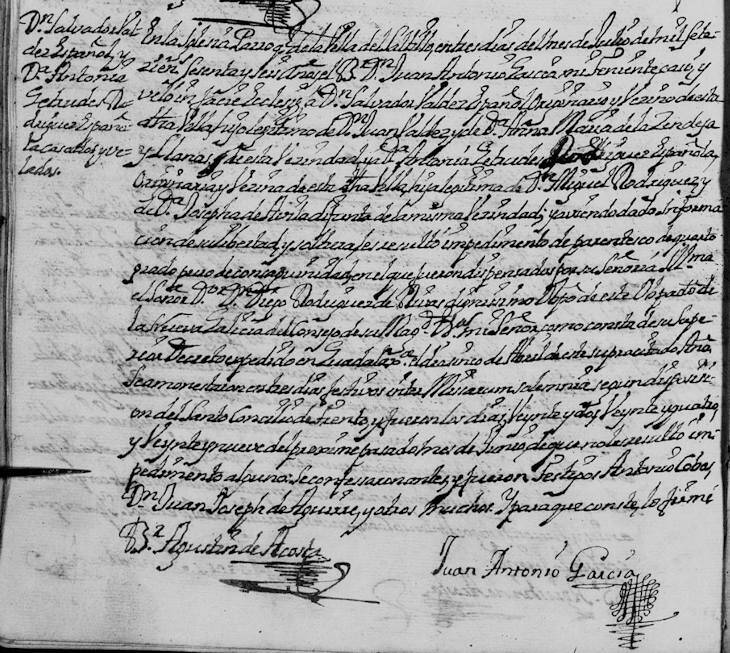 Dn. Salvador Val-
dez Español, y
Da. Antonia
Getrudes Ro-
driguez Españo-
la casados y ve-
lados.
En la Iglesia Parroql. de la Villa del Saltillo, en tres dias del mes de Julio de mil sete-
zien.s sesenta y seis años el Br. Dn. Juan Antonio Garcia mi Teniente casó, y
veló in facie Eclesiæ a Dn. Salvador Valdez Español, Originario y Vezino de esta
dha Villa hijo lexitimo de Dn. Juan Valdez y de Da. Anna Maria de la Zendeja
y Llanas de esta Vezindad, y a Da. Antonia Getrudes Rodriguez Española
Originaria y Vezina de esta dha Villa hija legitima de Dn. Miguel Rodriguez, y
de Da. Josepha de Avila difunta de la misma Vezindad; y aviendo dado informa-
cion de su libertad, y solteria, le resultó impedimento de parentesco de quarto
grado puro de consanguinidad, en el que fueron dispensados por su Señoria Illma.
el Señor Dor. Dn. Diego Rodriguez de Rivas dignissimo Obpô de este Obispado de
la Nueva Galicia del Consejo de su Magd. mi Señor, como consta de su Supe-
rior Decreto expedido en Guadalaxa. el dia cinco de Abril de este supracitado Año
Se amonestaron en tres dias festivos inter Missarum solemnia, segun disposici-
on del Santo Concilio de Trento, y fueron los dias Veynte y dos, Veynte y quatro
y Veynte y nueve del proxime pasado mes de Junio, de que no le resultó im-
pedimento alguno. Se confessaron antes, y fueron Testigos Antonio Cobos
Dn. Juan Joseph de Aguirre, y otros muchos. Y para que conste, lo firmé
Br. Agustin de Acosta
Juan Antonio Garcia